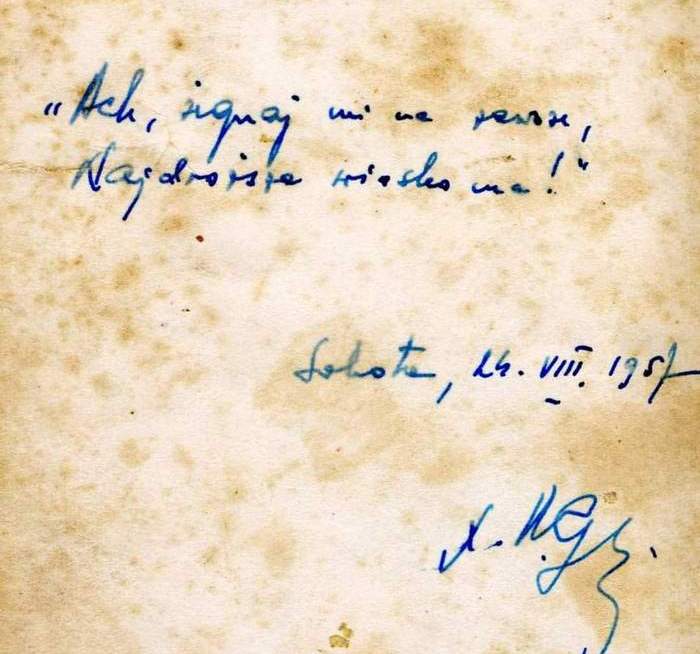 „Ach, żegnaj mi na zawsze,
Najdroższa wiosko ma!"
Sobota, 24. VIII. 1957